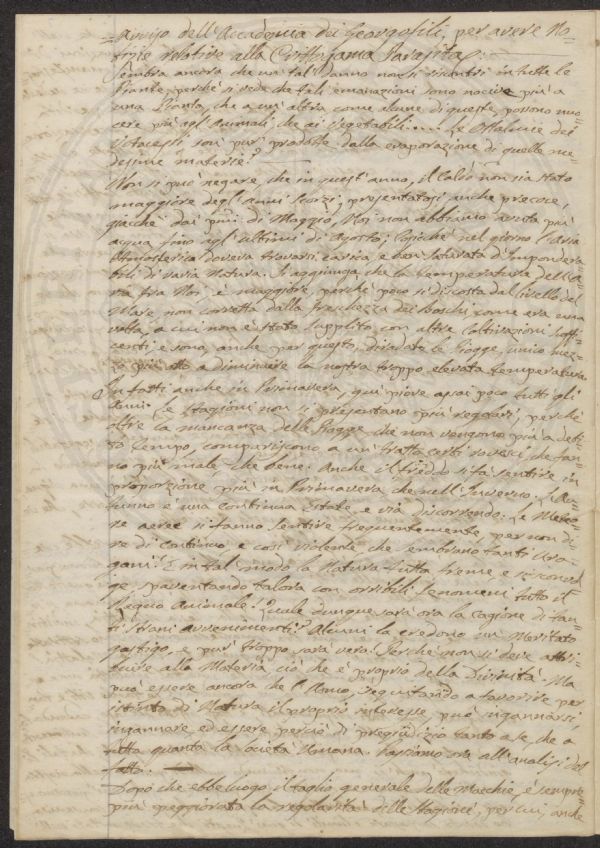 = Avviso dell'Accademia dei Georgofili, per avere No=
tizie relative alla Crittogama Parasita =
Sembra ancora che un tal danno non si riscontri in tutte le
Piante, perché si vede che tali emanazioni sono nocive più a
una Pianta, che a un altra come alcune di queste, possono nuo=
cere più agl'Animali, che ai Vegetabili..... Le Ottalmie dei
son pur prodotte dalla evaporazione di quelle me=
desime materie?
Non si può negare, che in quest'anno, il Calore non sia stato
maggiore degl'anni scorsi, presentatosi anche precoce,
giacché dai primi di Maggio, Noi non abbiamo avuta più
acqua fino agl'ultimi di Agosto; Cosicché nel giorno l'Aria
Atmosferica doveva trovarsi carica, e ben saturata d'Impondera=
bili di varia Natura. Si aggiunga, che la temperatura dell'A=
ria fra Noi, è maggiore, perché poco si discosta dal livello del
Mare non corretta dalla freschezza dei boschi, come era una
volta, a cui non è stato supplito con altre Coltivazioni suffi=
centi e sono, anche per questo, diradate le Piogge, unico mez=
zo più atto a diminuire la nostra troppo elevata temperatura.
Infatti anche in Primavera, qui piove assai poco tutti gli
Anni. Le Stagioni non si presentano più regolari, perché
oltre la mancanza delle Piogge che non vengono più a debi=
to tempo, compariscono a un tratto certi rovesci, che fan=
no più male che bene. Anche il freddo si fa sentire in
proporzione più in Primavera, che nell'Inverno. L'Au=
tunno è una continua Estate, e via discorrendo. Le Meteo=
re aeree si fanno sentire frequentemente, per non di=
re di continuo e così violente, che sembrano tanti Ura=
gani! E in tal modo la Natura tutta freme e
spaventando talora con orribili fenomeni tutto il
Regno Animale! Quale dunque sarà ora la cagione di tan=
ti strani avvenimenti? Alcuni la credono un Meritato
gastigo, e pur troppo sarà vero! Perché non si deve attri=
buire alla Materia ciò che è proprio della Divinità. Ma
può essere ancora che l'Uomo, seguitando a favorire per
istinto di Natura il proprio interesse, può ingannarsi,
ingannare, ed essere perciò di pregiudizio tanto a se, che a
tutta quanta la Società Umana. Passiamo ora all'analisi del
fatto. —
Dopo che ebbe luogo, il taglio generale delle Macchie, è sempre
più peggiorata la regolarità delle Stagioni, per cui, anche